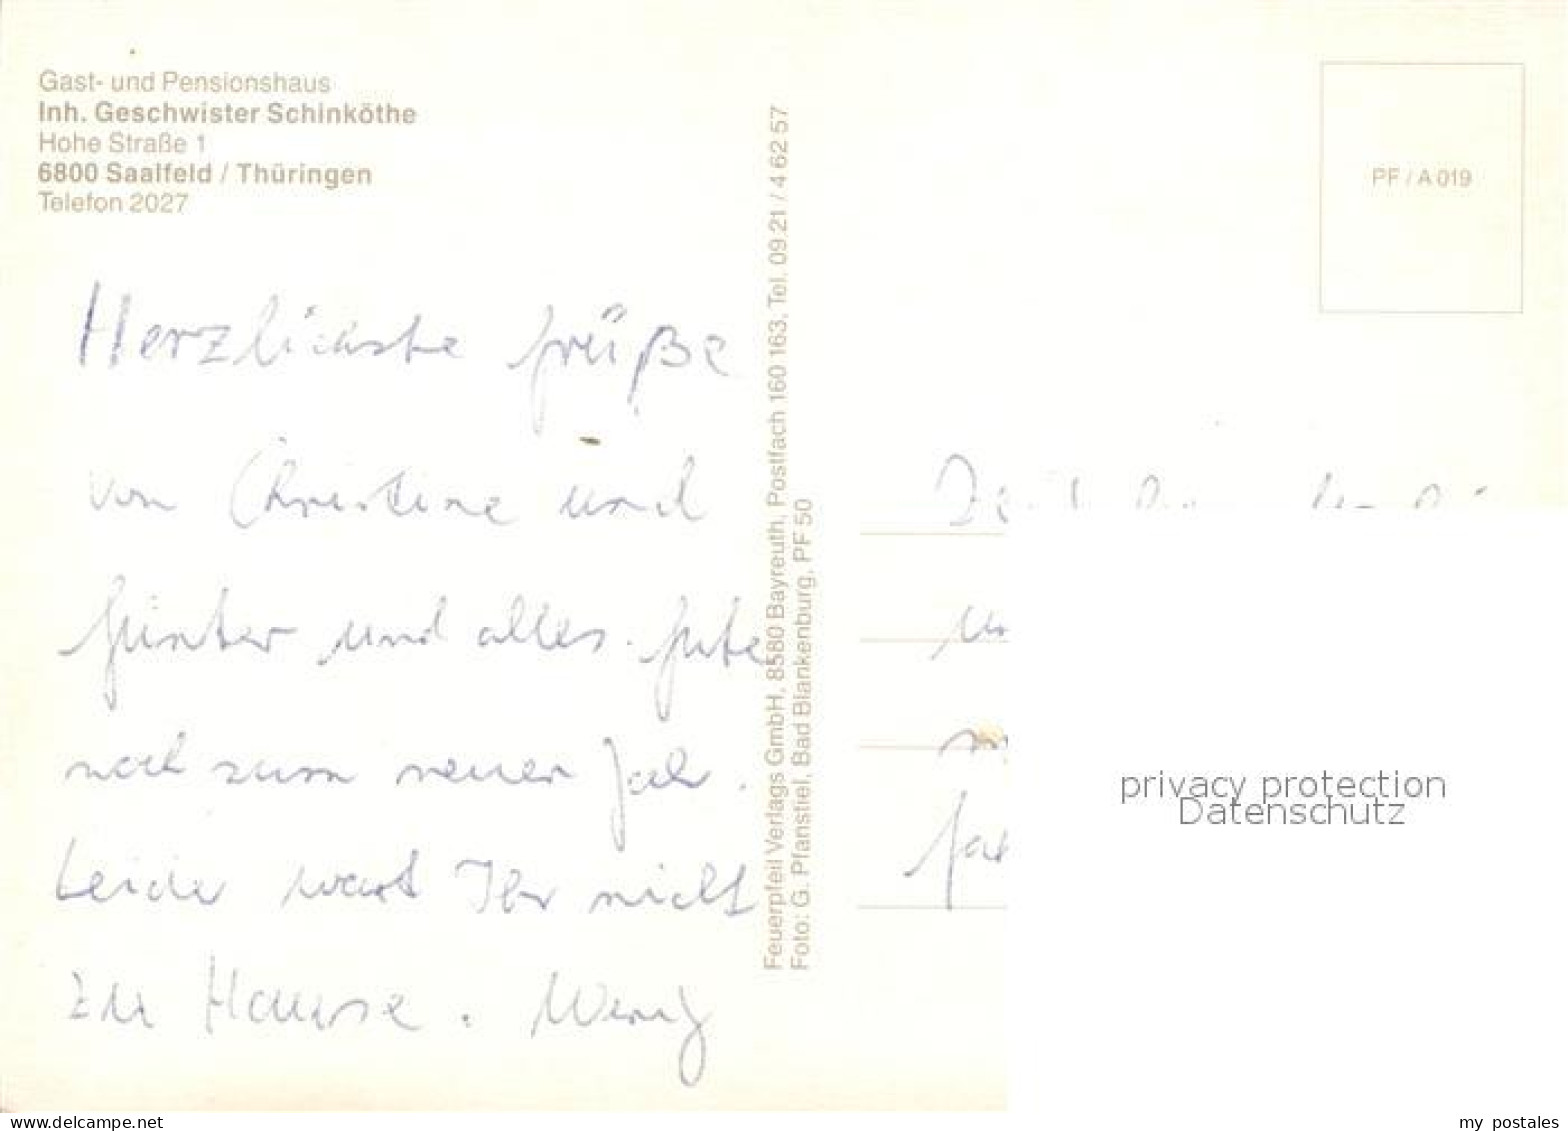 Gast- und Pensionshaus
Inh. Geschwister Schinköthe
Hohe Straße 1
6800 Saalfeld / Thüringen
Telefon 2027
Herzlichste Grüße
von Christine und
Günter und alles Gute
noch zum neuen Jahr.
Leider wart Ihr nicht
zu Hause.
Feuerpfeil Verlags GmbH, 8580 Bayreuth, Postfach 160 163, Tel. 09 21 / 4 62 57
Foto: G. Pfanstiel, Bad Blankenburg, PF 50
PF / A 019
privacy protection
Datenschutz
www.delcampe.net
my_postales